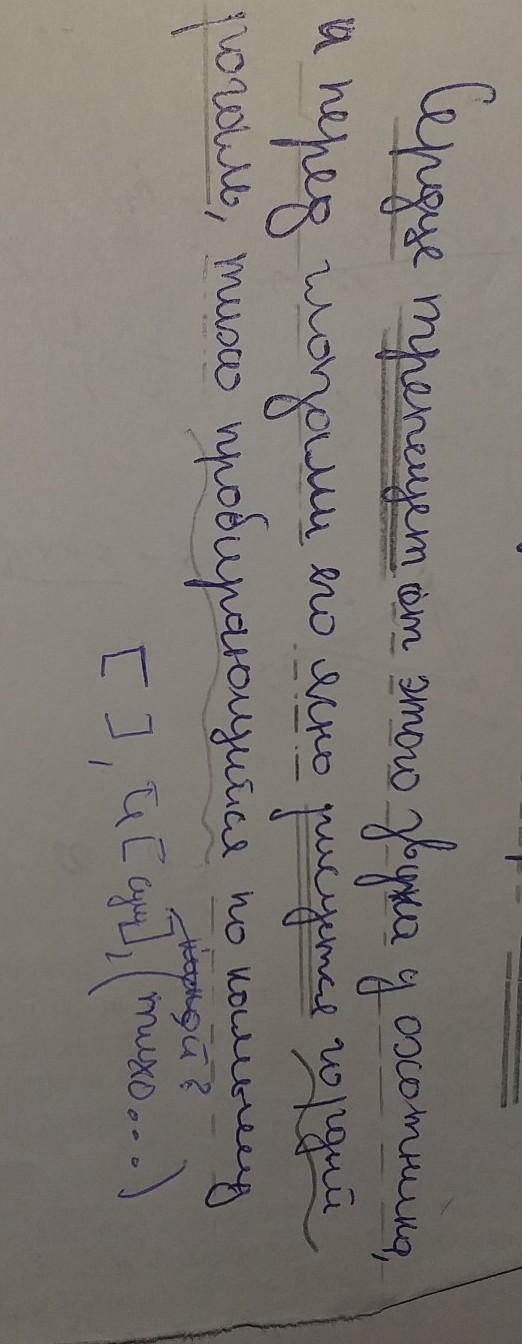 Сердце трепещет от этого звука у охотника,
и перед глазами его ясно рисуется гордый
рогаль, тихо пробирающийся по камышу
какой?
[ ], и [сущ], (тихо...)